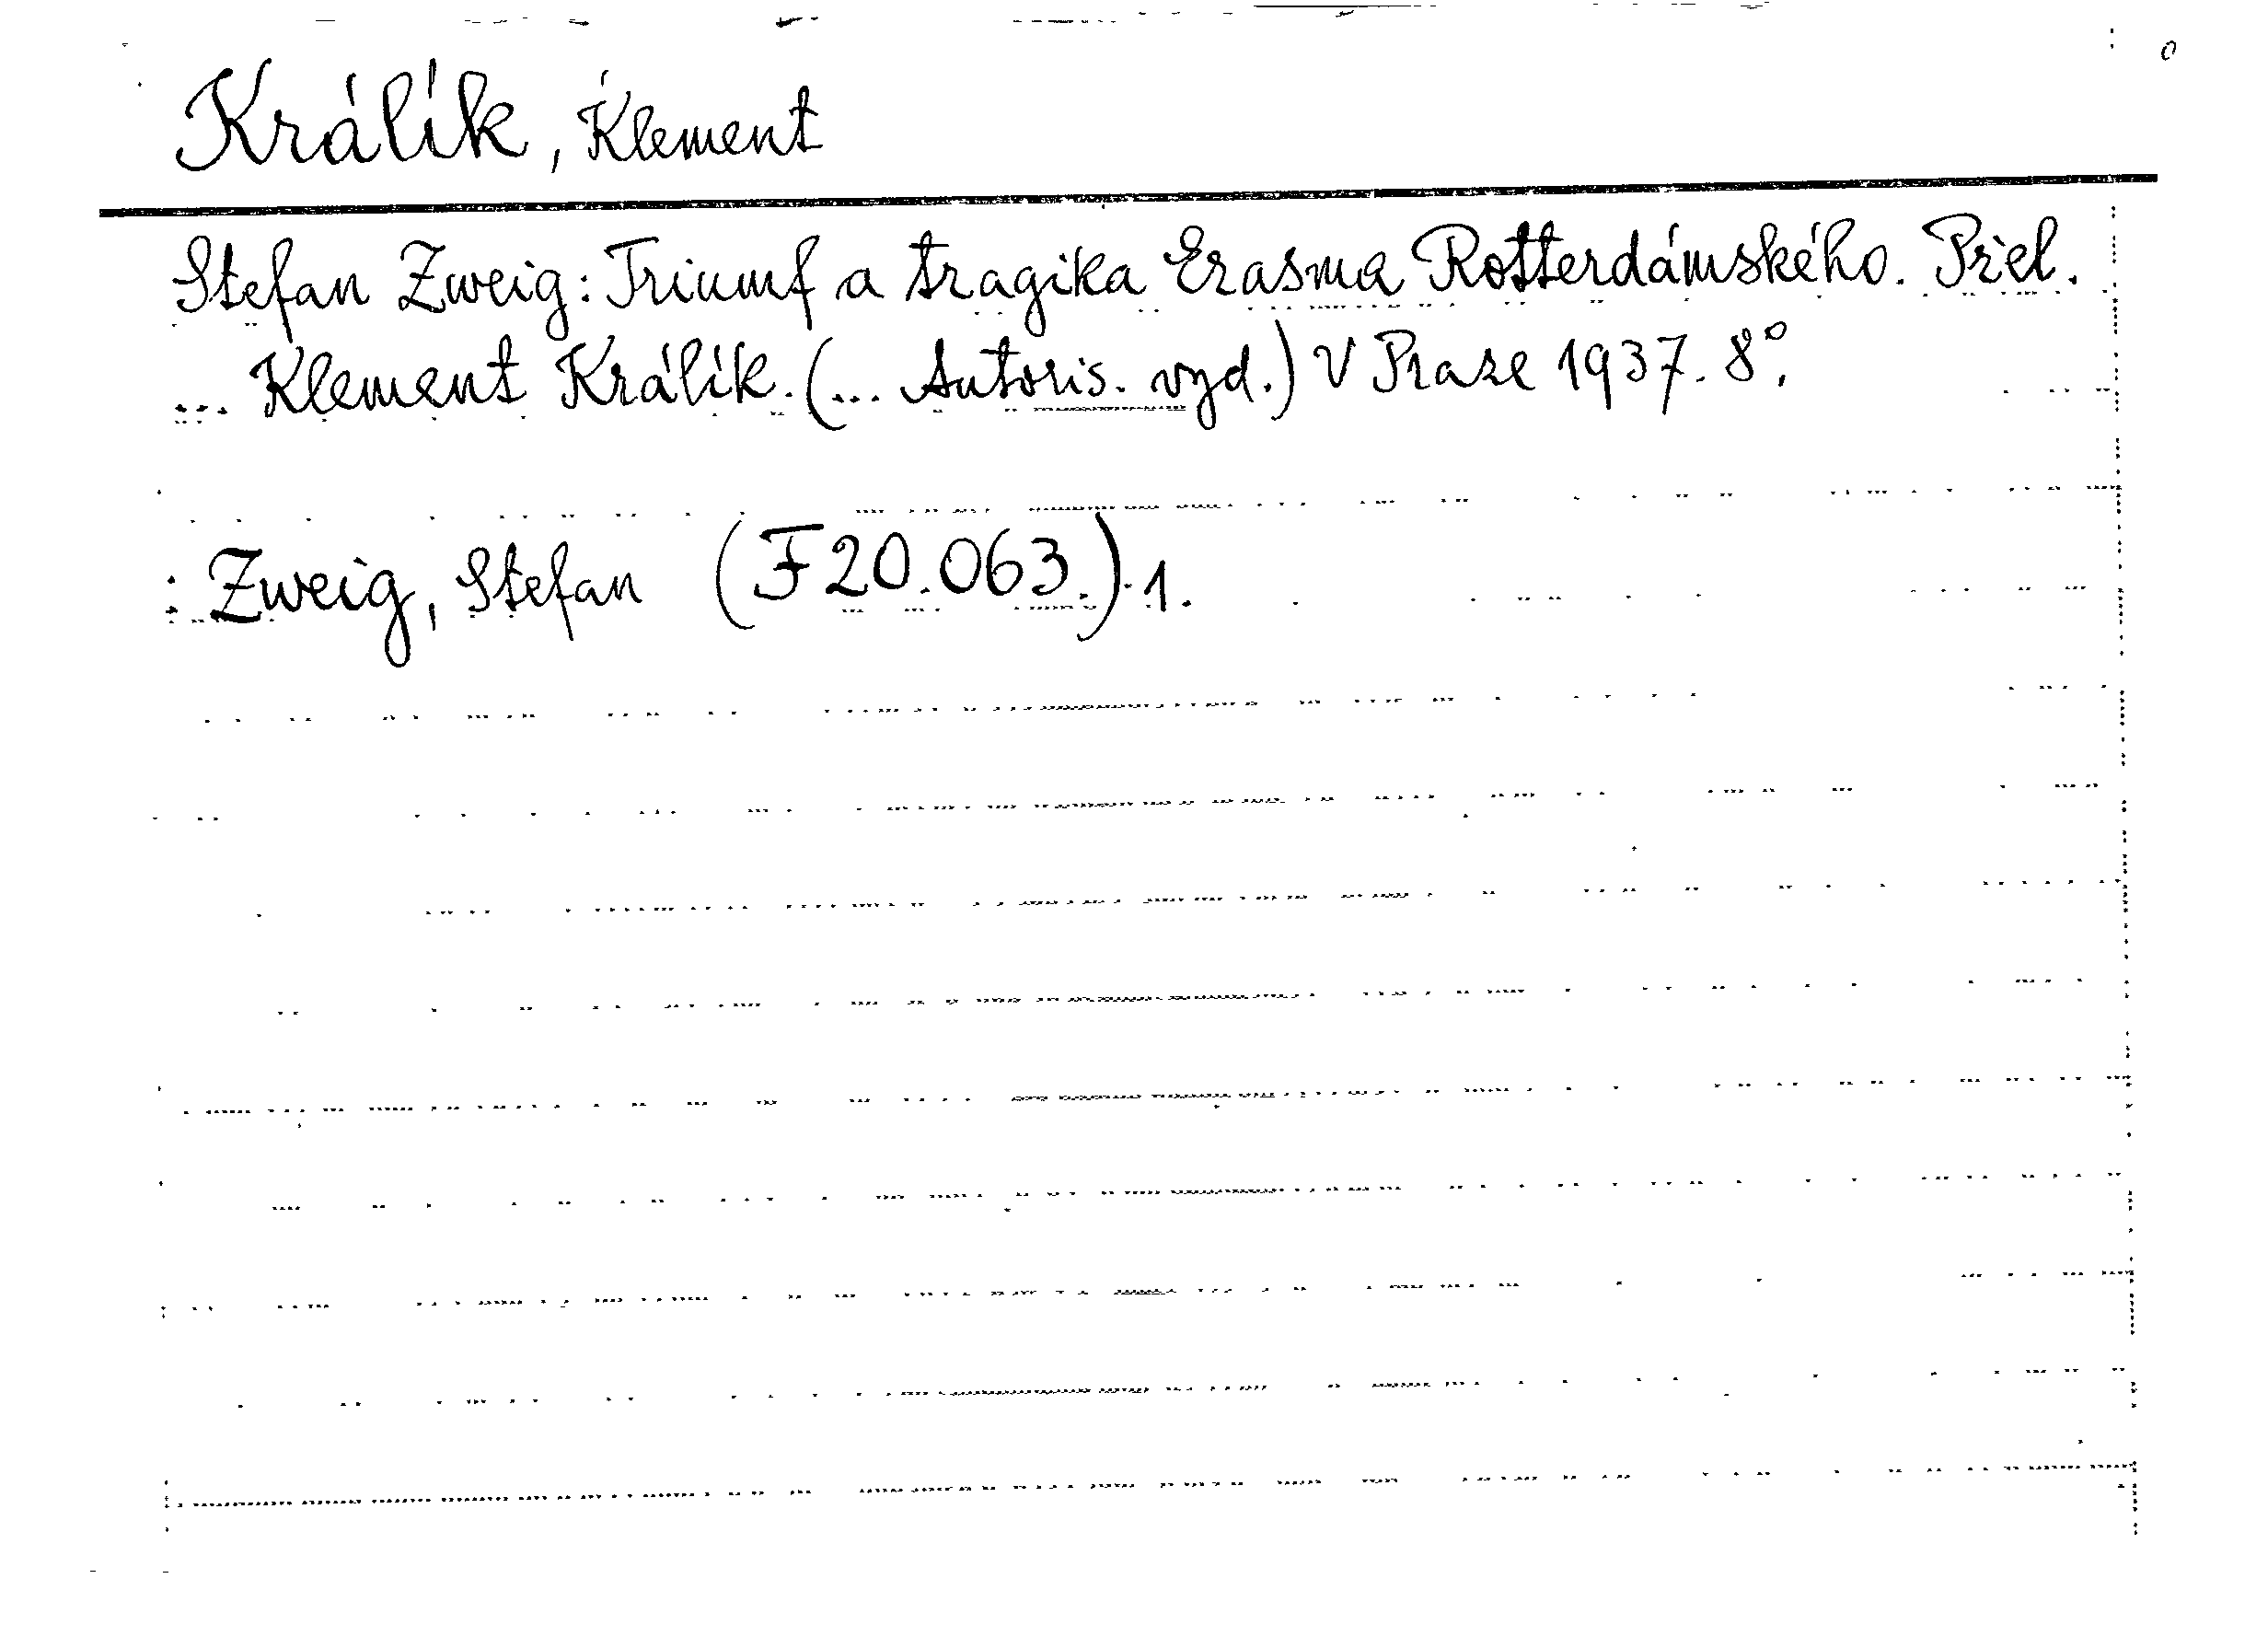 Králík, Klement
Stefan Zweig: Triumf a tragika Erasma Rotterdámského. Přel.
... Klement Králík. (... Autoris. vyd.) V Praze 1937. 8°.
: Zweig, Stefan (F 20.063.) 1.